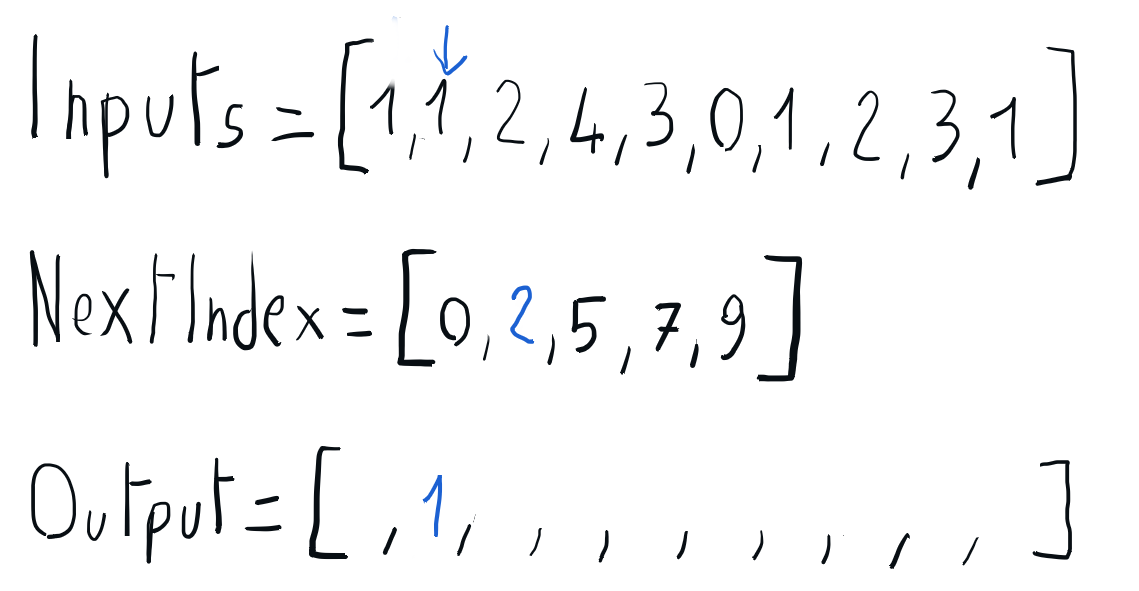 Inputs = [1, 1, 2, 4, 3, 0, 1, 2, 3, 1]
NextIndex = [0, 2, 5, 7, 9]
Output = [ , 1, , , , , , , , ]